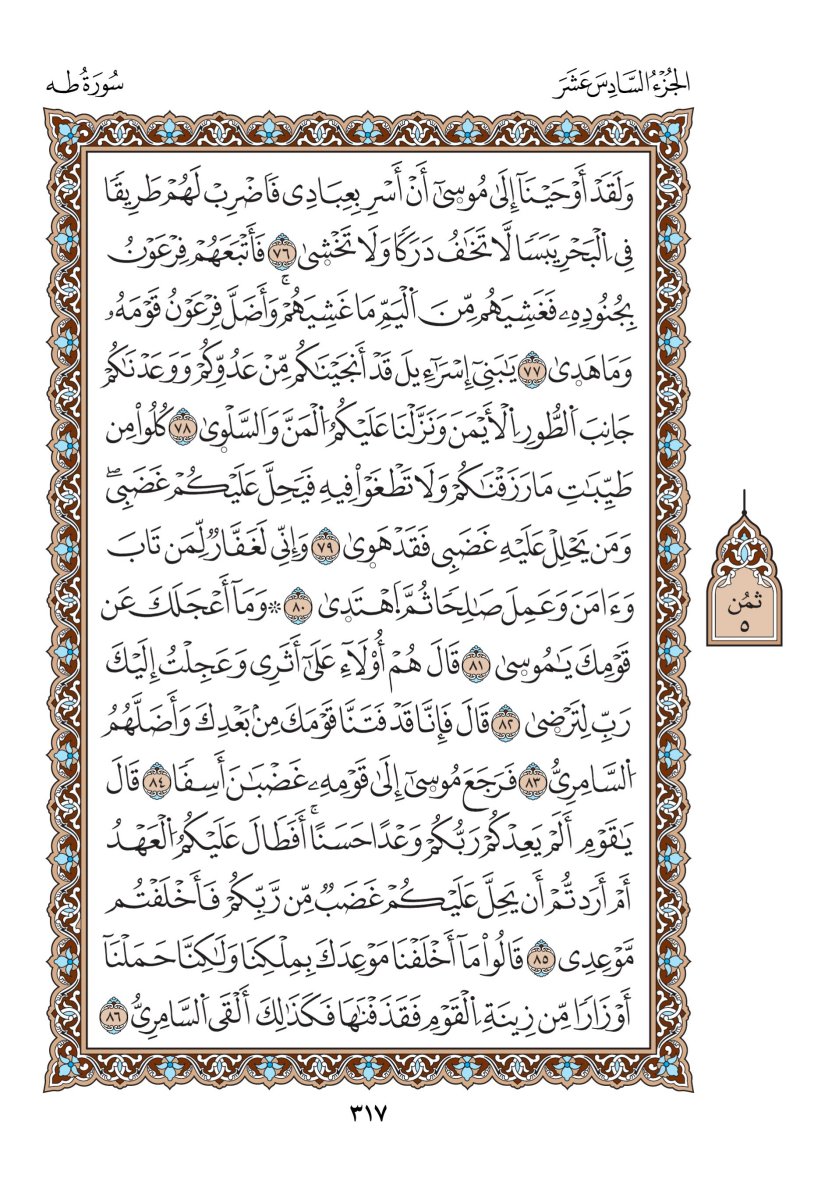 الجُزْءُ السَّادِسَ عَشَرَ
سُورَةُ طه
وَلَقَدْ أَوْحَيْنَآ إِلَىٰ مُوسىٰٓ أَنْ أَسْرِ بِعِبَادِى فَاَضْرِبْ لَهُمْ طَرِيقًا
فِى اِلْبَحْرِ يَبَسًا لَّا تَخَٰفُ دَرَكًا وَلَا تَخْشىٰ ٧٦ فَأَتْبَعَهُمْ فِرْعَوْنُ
بِجُنُودِهِۦ فَغَشِيَهُم مِّنَ اَلْيَمِّ مَا غَشِيَهُمْۚ وَأَضَلَّ فِرْعَوْنُ قَوْمَهُۥ
وَمَا هَدىٰ ٧٧ يَٰبَنِىٓ إِسْرَآءِيلَ قَدْ أَنجَيْنَٰكُم مِّنْ عَدُوِّكُمْ وَوَعَدْنَٰكُمْ
جَانِبَ اَلطُّورِ اِلْأَيْمَنَ وَنَزَّلْنَا عَلَيْكُمُ اُلْمَنَّ وَالسَّلْوىٰ ٧٨ كُلُواْ مِن
طَيِّبَٰتِ مَا رَزَقْنَٰكُمْ وَلَا تَطْغَوْاْ فِيهِ فَيَحِلَّ عَلَيْكُمْ غَضَبِىۖ
وَمَن يَحْلِلْ عَلَيْهِ غَضَبِى فَقَدْ هَوىٰ ٧٩ وَإِنِّى لَغَفَّارٌ لِّمَن تَابَ
وَءَامَنَ وَعَمِلَ صَٰلِحًا ثُمَّ اَهْتَدىٰ ٨٠ ۞وَمَآ أَعْجَلَكَ عَن
قَوْمِكَ يَٰمُوسىٰ ٨١ قَالَ هُمْ أُوْلَآءِ عَلَىٰٓ أَثَرِى وَعَجِلْتُ إِلَيْكَ
رَبِّ لِتَرْضىٰ ٨٢ قَالَ فَإِنَّا قَدْ فَتَنَّا قَوْمَكَ مِنۢ بَعْدِكَ وَأَضَلَّهُمُ
اُلسَّامِرِىُّ ٨٣ فَرَجَعَ مُوسىٰٓ إِلَىٰ قَوْمِهِۦ غَضْبَٰنَ أَسِفًا ٨٤ قَالَ
يَٰقَوْمِ أَلَمْ يَعِدْكُمْ رَبُّكُمْ وَعْدًا حَسَنًاۚ أَفَطَالَ عَلَيْكُمُ اُلْعَهْدُ
أَمْ أَرَدتُّمْ أَن يَحِلَّ عَلَيْكُمْ غَضَبٌ مِّن رَّبِّكُمْ فَأَخْلَفْتُم
مَّوْعِدِى ٨٥ قَالُواْ مَآ أَخْلَفْنَا مَوْعِدَكَ بِمِلْكِنَا وَلَٰكِنَّا حَمَلْنَآ
أَوْزَارًا مِّن زِينَةِ اِلْقَوْمِ فَقَذَفْنَٰهَا فَكَذَٰلِكَ أَلْقَى اَلسَّامِرِىُّ ٨٦
ثُمُن
٥
٣١٧